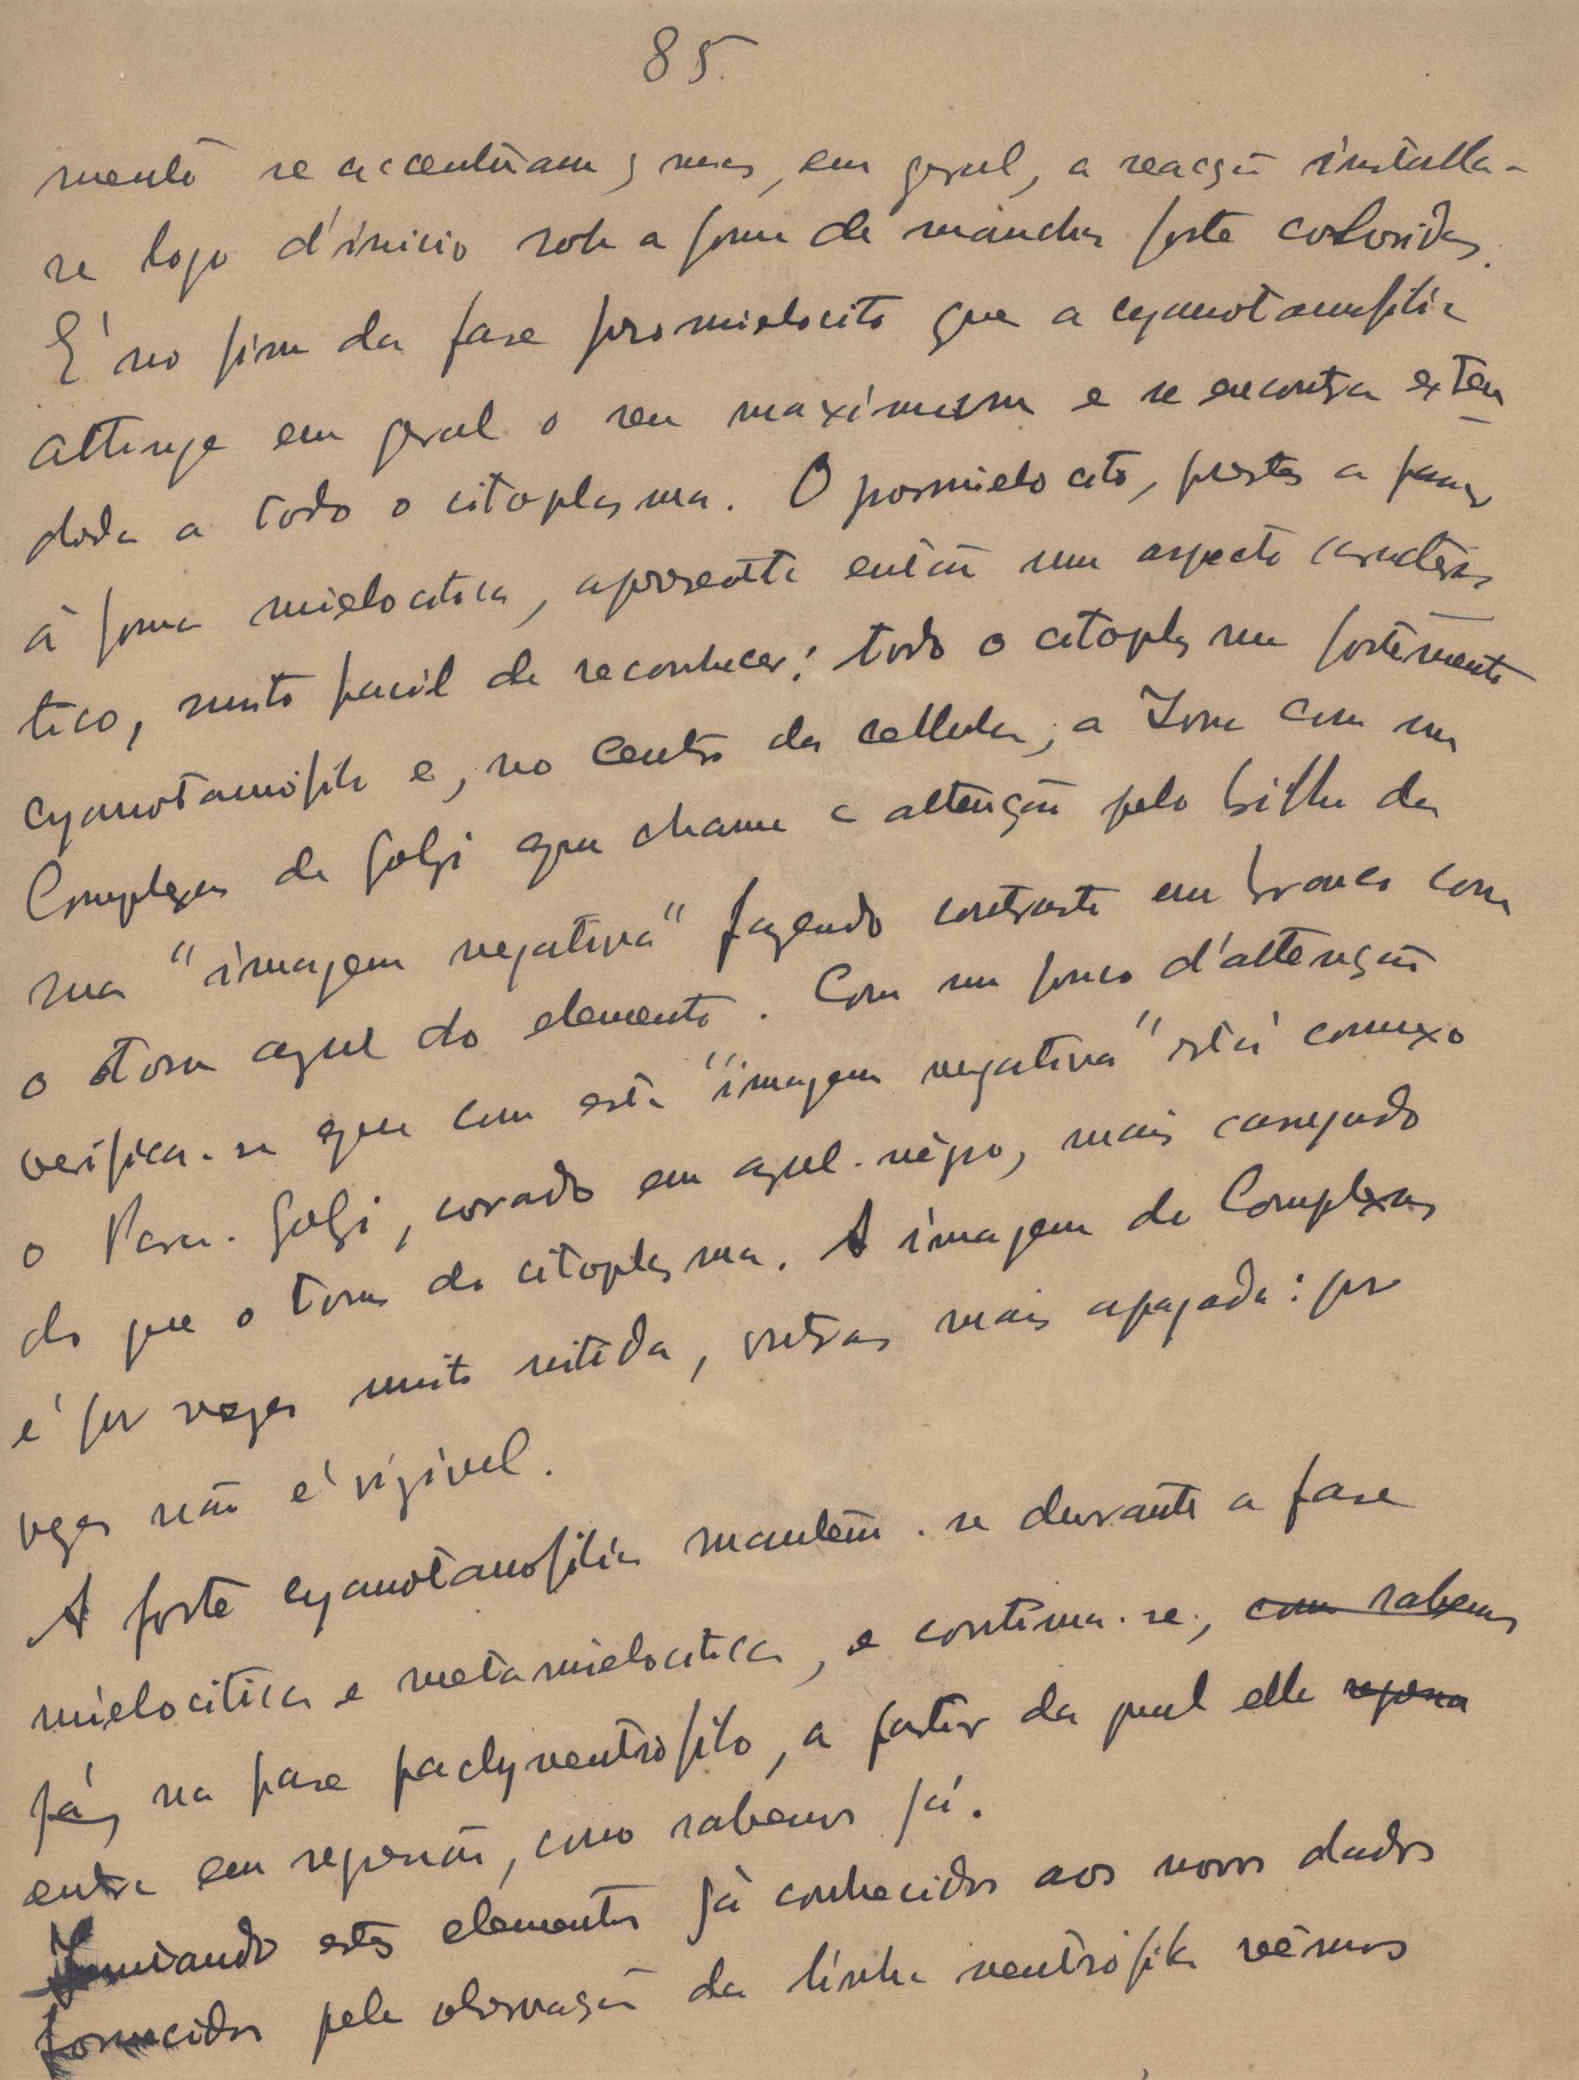 85
mento se accentuam; mas, em geral, a reacção installa-
se logo d'inicio sob a forma de manchas forte coloridas.
É no fim da fase promielocito que a cyanotanofilia
attinge em geral o seu maximum e se encontra exten
dida a todo o citoplasma. O promielocito, prestes a passar
á forma mielocitica, apresenta então um aspecto caracteris
tico, muito facil de reconhecer: todo o citoplasma fortemente
cyanotanofilo e, no centro da cellula, a Zona com um
Complexus de Golgi que chama a attenção pelo brilho da
sua "imagem negativa" fazendo contraste em branco com
o tom azul do elemento. Com um pouco d'attenção
verifica-se que com esta "imagem negativa" está connexo
o Para-Golgi, corado em azul-negro, mais carregado
do que o tom do citoplasma. A imagem do Complexus
é por vezes muito nitida, outras mais apagada: por
vezes não é vizivel.
A forte cyanotanofilia mantem-se durante a fase
mielocitica e metamielocitica, e continua-se, com sabemos
já, na fase pachyneutrofilo, a partir da qual ella
entra em regressão, como sabemos já.
Juntando estes elementos já conhecidos aos novos dados
fornecidos pela observação da linha neutrofila vêmos